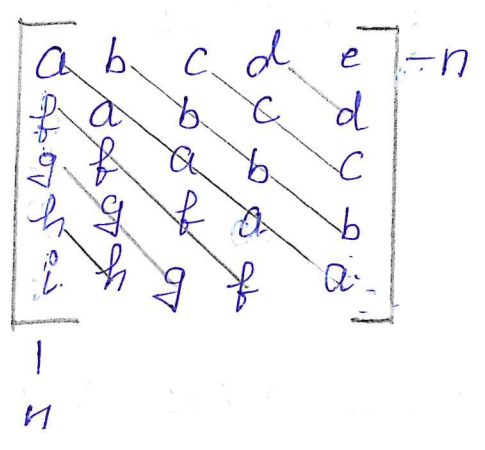 a b c d e — n
f a b c d
g f a b c
h g f a b
i h g f a
|
n